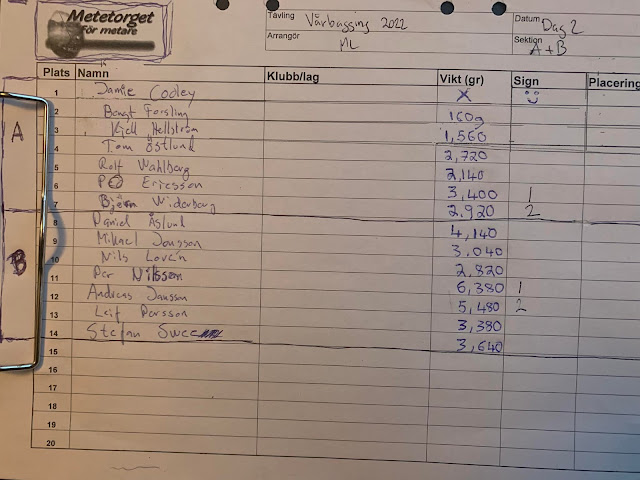 Metetorget
För metare
Tävling Vårbagging 2022
Arrangör ML
Datum Dag 2
Sektion A+B
Plats Namn Klubb/lag Vikt (gr) Sign Placering
A
B
1 Jamie Cooley X
2 Bengt Forsling 160g
3 Kjell Hellström 1,560
4 Tom Östlund 2,720
5 Rolf Wahlberg 2,140
6 PO Ericsson 3,400 1
7 Björn Widerberg 2,920 2
8 Daniel Åslund 4,140
9 Mikael Jonsson 3,040
10 Nils Lovén 2,820
11 Per Nilsson 6,380 1
12 Andreas Jansson 5,480 2
13 Leif Persson 3,380
14 Stefan 3,640
15
16
17
18
19
20